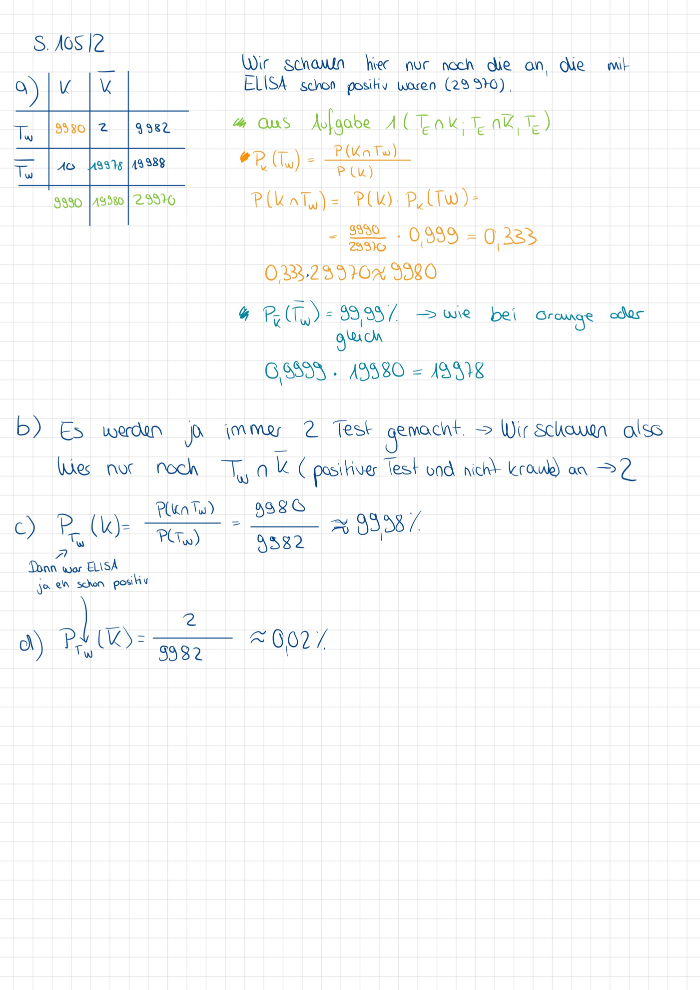 S. 105/2
a)
K K̅
T_w 9980 2 9982
T̅_w 10 19978 19988
9990 19980 29970
Wir schauen hier nur noch die an, die mit
ELISA schon positiv waren (29970).
aus Aufgabe 1 (T_E ∩ K; T_E ∩ K̅, T_E)
P_K(T_w) = P(K∩T_w) / P(K)
P(K∩T_w) = P(K) · P_K(T_w) =
= 9990/29970 · 0,999 = 0,333
0,333·29970 ≈ 9980
P_K̅(T̅_w) = 99,99% → wie bei orange oder
gleich
0,9999 · 19980 = 19978
b) Es werden ja immer 2 Test gemacht. → Wir schauen also
hies nur noch T_w ∩ K̅ (positiver Test und nicht krank) an → 2
c) P_T_w(K) = P(K∩T_w) / P(T_w) = 9980 / 9982 ≈ 99,98%
Dann war ELISA
ja eh schon positiv
d) P_T_w(K̅) = 2 / 9982 ≈ 0,02%